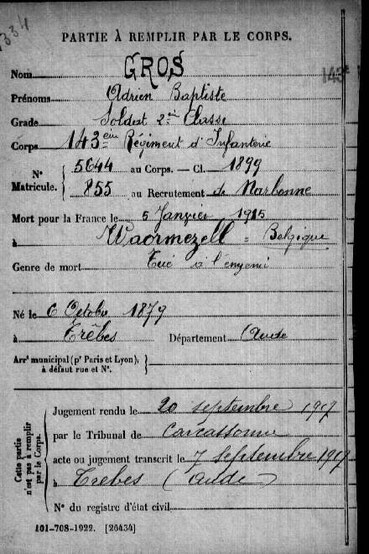 1334
PARTIE À REMPLIR PAR LE CORPS.
Nom GROS
143e
Prénoms Adrien Baptiste
Grade Soldat 2e Classe
Corps 143eme Régiment d'Infanterie
N° Matricule. { 5644 au Corps. — Cl. 1899
855 au Recrutement de Narbonne
Mort pour la France le 5 Janvier 1915
à Waormezell = Belgique
Genre de mort Tué à l'ennemi
Né le 6 Octobre 1879
à Trèbes Département Aude
Arrt municipal (pr Paris et Lyon), à défaut rue et N°. {
Cette partie n'est pas à remplir par le Corps.
Jugement rendu le 20 septembre 1917
par le Tribunal de Carcassonne
acte ou jugement transcrit le 7 septembre 1917
à Trebes (Aude)
N° du registre d'état civil
101-708-1922. [26434]